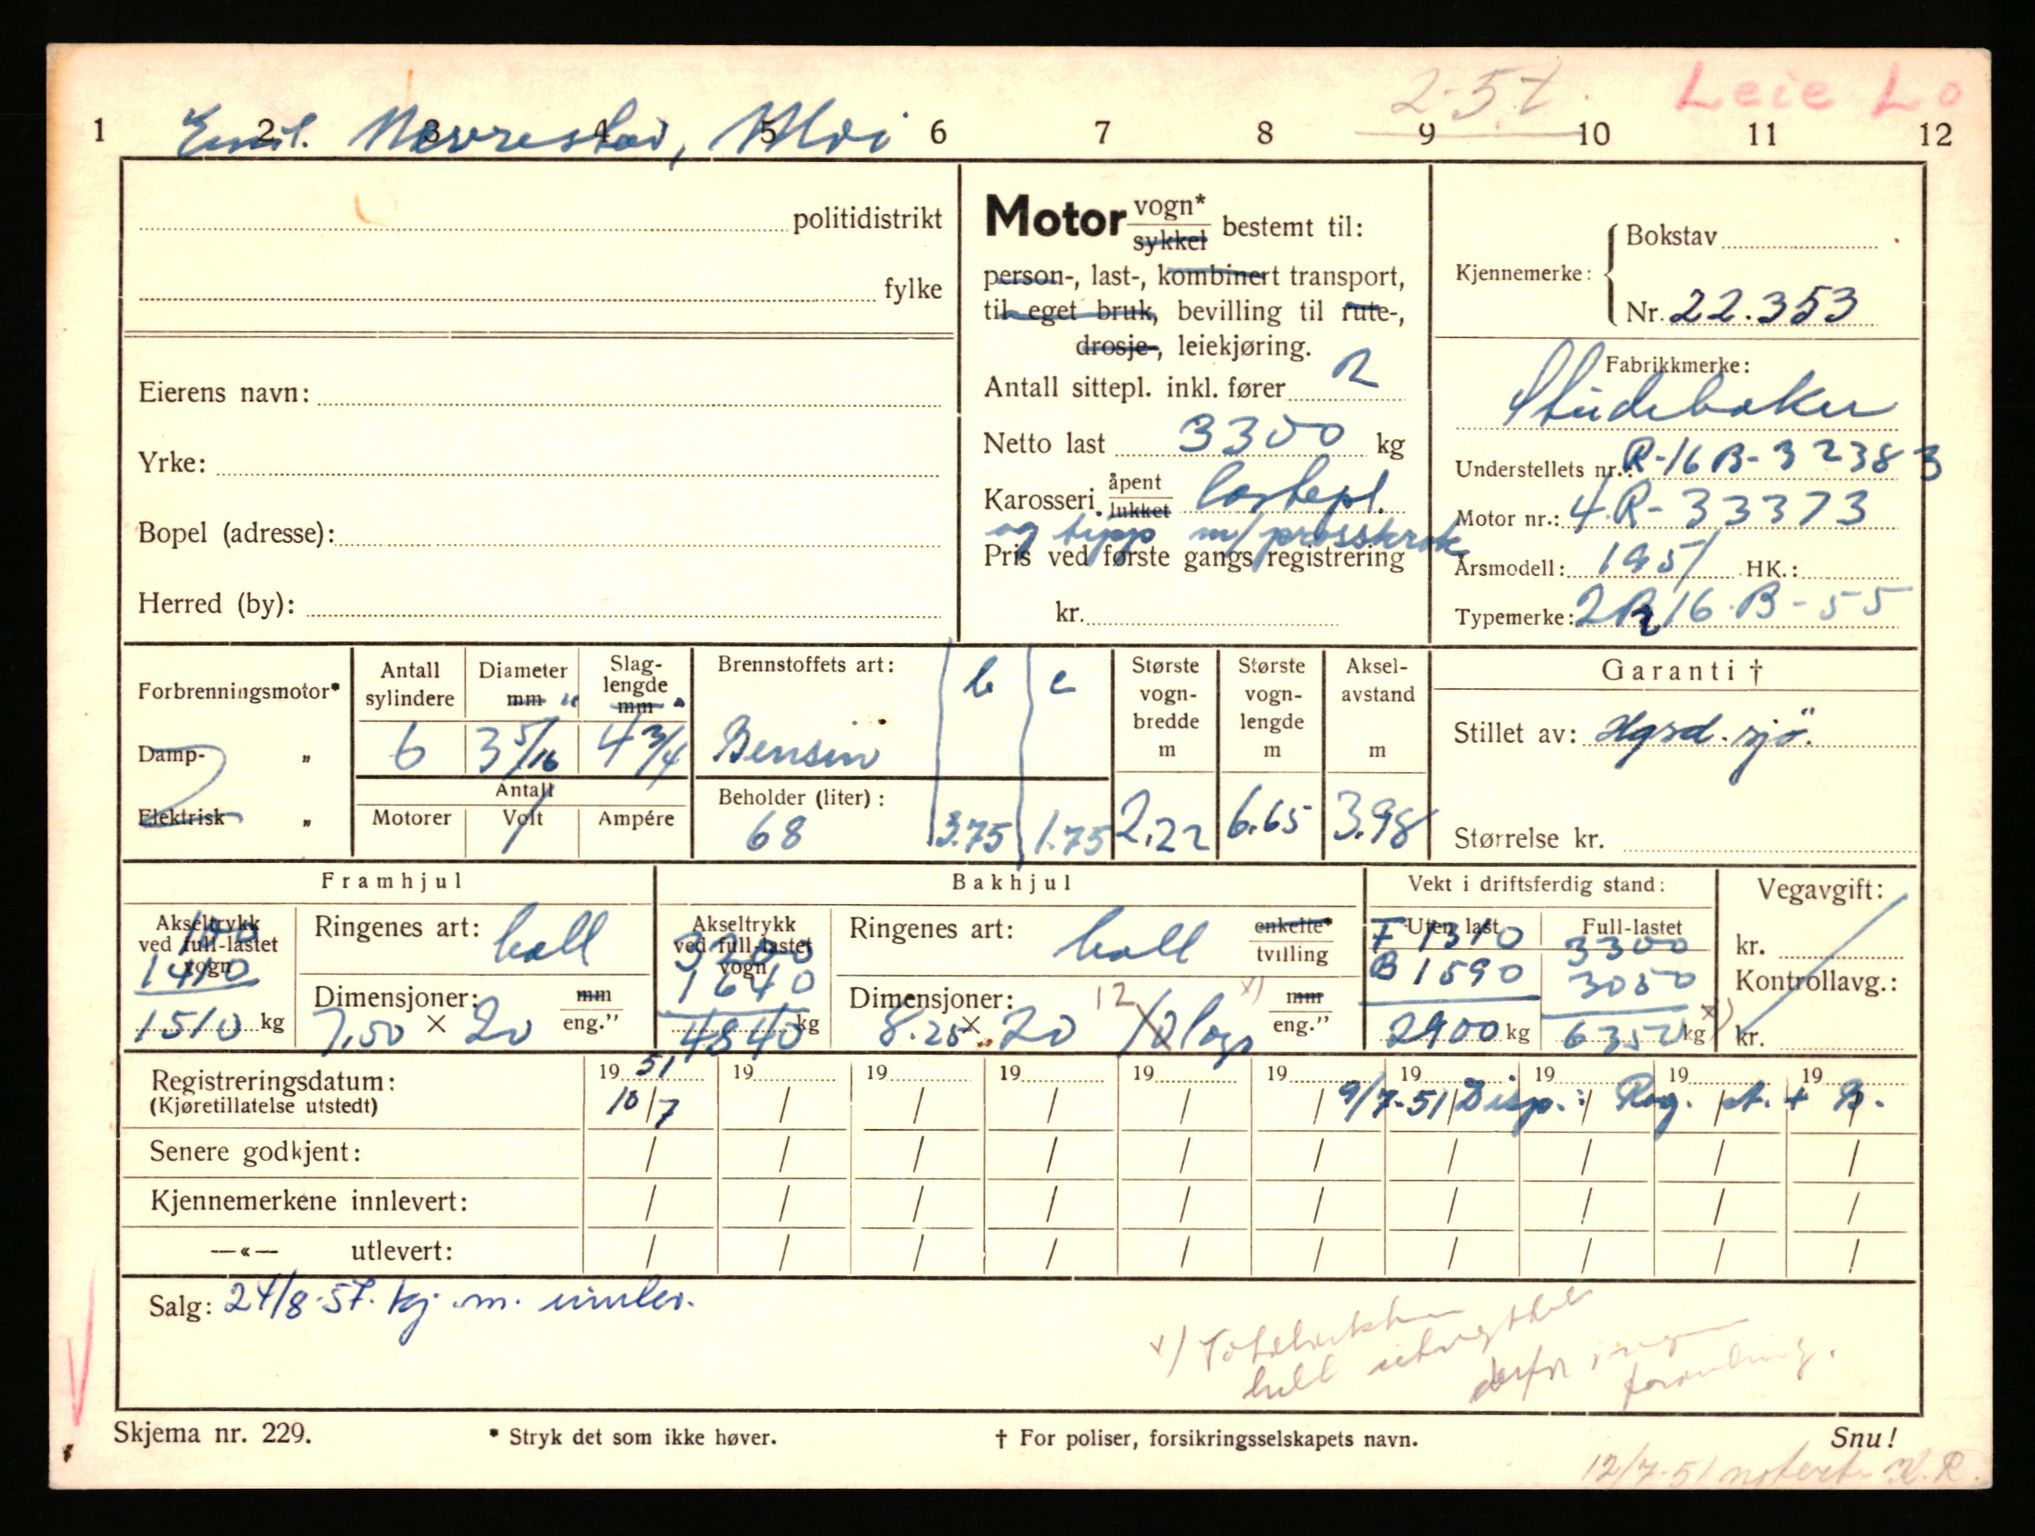 2-57. Leie Lo
1 2 3 4 5 6 7 8 9 10 11 12
Emil Nevrestad, Moi
politidistrikt
fylke
Eierens navn:
Yrke:
Bopel (adresse):
Herred (by):
Motor vogn* sykkel bestemt til:
person-, last-, kombinert transport,
til eget bruk, bevilling til rute-,
drosje-, leiekjøring.
Antall sittepl. inkl. fører 2
Netto last 3300 kg
Karosseri åpent lukket lastepl.
og tipp m/
Pris ved første gangs registrering
kr.
Kjennemerke: Bokstav
Nr. 22.353
Fabrikkmerke:
Studebaker
Understellets nr.: R-16B-32383
Motor nr.: 4.R-33373
Årsmodell: 1951 HK.:
Typemerke: 2R16.B-55
Forbrenningsmotor*
Damp- "
Elektrisk "
Antall sylindere
6
Diameter mm "
3 5/16
Slaglengde mm "
4 3/4
Antall
Motorer Volt Ampére
Brennstoffets art: b c
Bensin
Beholder (liter):
68 3.75 1.75
Største vognbredde m
2.22
Største vognlengde m
6.65
Akselavstand m
3.98
Garanti †
Stillet av: Hgsd. sjö.
Størrelse kr.
Framhjul
Akseltrykk ved full-lastet vogn
100
1410
1510 kg
Ringenes art: holl
Dimensjoner: mm eng."
7,50 × 20
Bakhjul
Akseltrykk ved full-lastet vogn
3200
1640
4840 kg
Ringenes art: holl enkelte* tvilling
Dimensjoner: 12 x) mm eng."
8.25 × 20 /10 lags
Vekt i driftsferdig stand:
Uten last Full-lastet
F 1310 3300
B 1590 3050
2900 kg 6350 kg x)
Vegavgift:
kr.
Kontrollavg.:
kr.
Registreringsdatum: 19 51 19 19 19 19 19 19 19 19 19
(Kjøretillatelse utstedt) 10/7 / / / / / 9/7-51 Disp.: Reg. st. + B.
Senere godkjent: / / / / / / / / / /
Kjennemerkene innlevert: / / / / / / / / / /
—«— utlevert: / / / / / / / / / /
Salg: 24/8-57. kj.m. innlev.
x) Totalvekten
helt
derfor ingen
forandring.
Skjema nr. 229.
* Stryk det som ikke høver.
† For poliser, forsikringsselskapets navn.
Snu!
12/7-51 notert K.R.